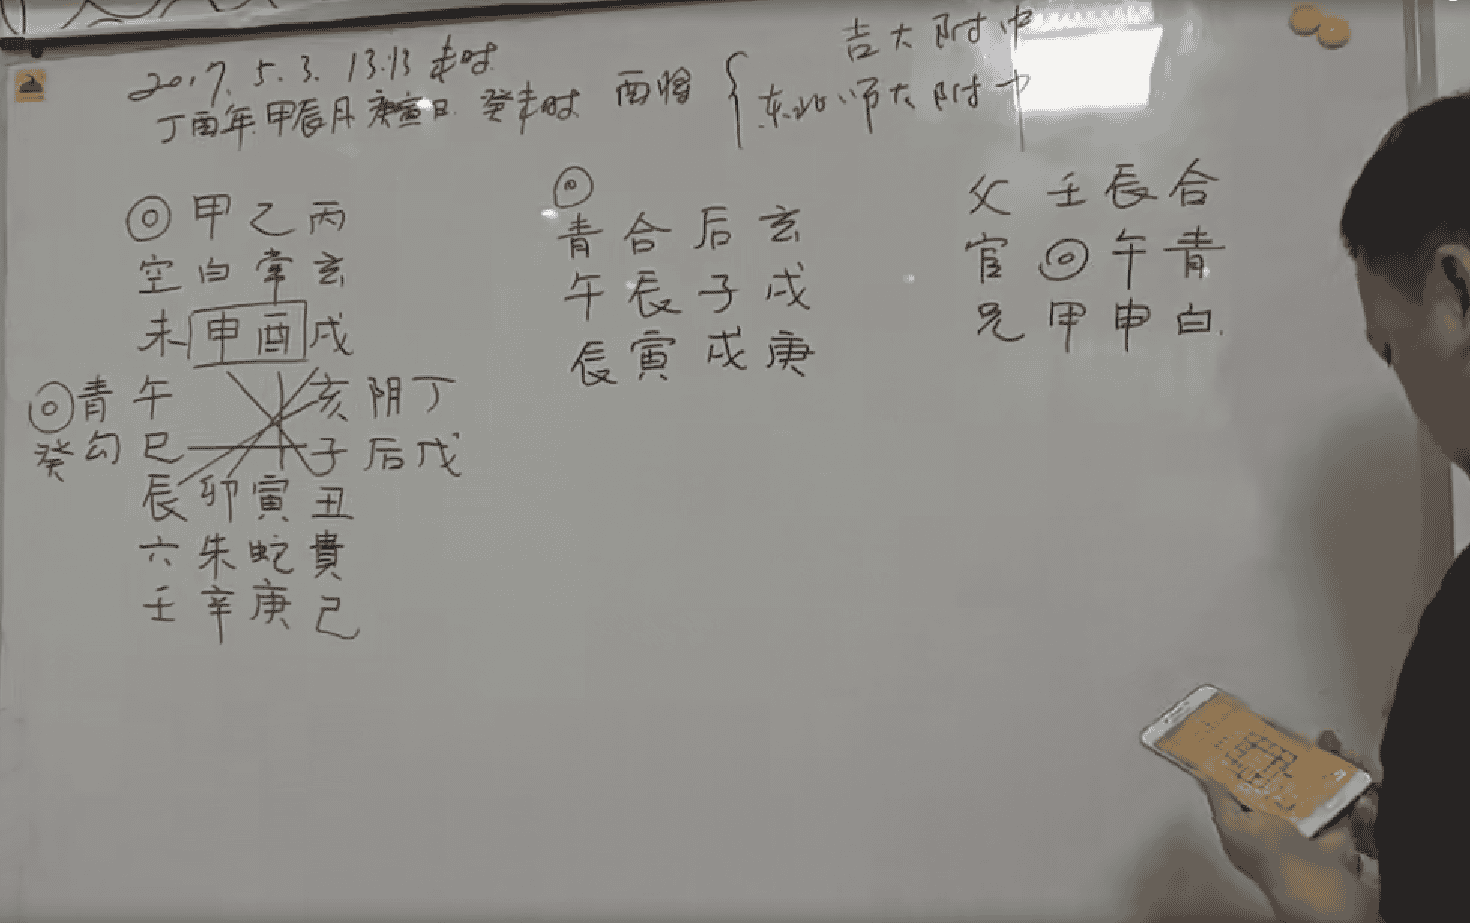 2017. 5. 3. 13:13 未时
丁酉年 甲辰月 庚寅日 癸未时 酉将
吉大附中
东北师大附中
◎ 甲 乙 丙
空 白 常 玄
未 申 酉 戌
◎ 青 午 亥 阴 丁
癸 勾 巳 子 后 戊
辰 卯 寅 丑
六 朱 蛇 貴
壬 辛 庚 己
◎
青 合 后 玄
午 辰 子 戌
辰 寅 戌 庚
父 壬 辰 合
官 ◎ 午 青
兄 甲 申 白.